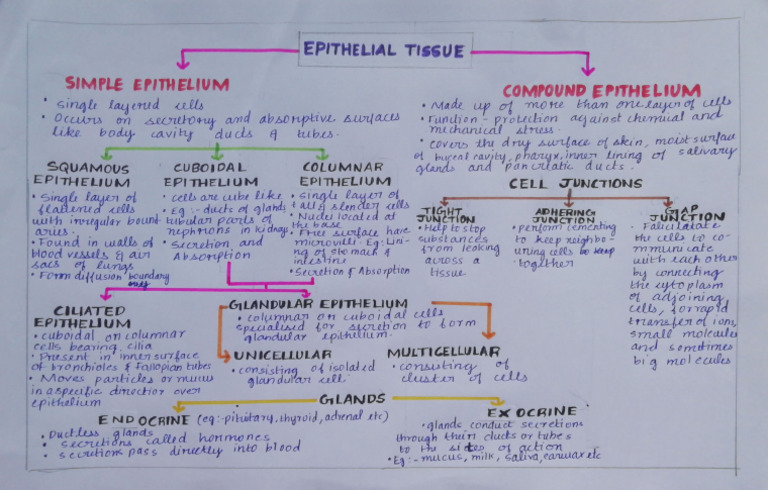 EPITHELIAL TISSUE
SIMPLE EPITHELIUM
• Single layered cells
• Occurs on secretory and absorptive surfaces
like body cavity ducts & tubes.
COMPOUND EPITHELIUM
• Made up of more than one layer of cells
• Function - protection against chemical and
mechanical stress.
• Covers the dry surface of skin, moist surface
of buccal cavity, pharyx, inner lining of salivary
glands and pancreatic ducts.
SQUAMOUS
EPITHELIUM
• Single layer of
flattened cells
with irregular bound
aries.
• Found in walls of
blood vessels & air
sacs of lungs
• Form diffusion boundary
CUBOIDAL
EPITHELIUM
• cells are cube like
• Eg :- ducts of glands
tubular parts of
nephrons in kidney
• Secretion and
Absorption
COLUMNAR
EPITHELIUM
• single layer of
tall & slender cells
• Nuclei located at
the base
• Free surface have
microvilli. Eg: Lini-
ng of stomach &
intestine
• Secretion & Absorption
CELL JUNCTIONS
TIGHT
JUNCTION
• Help to stop
substances
from leaking
across a
tissue
ADHERING
JUNCTION
• perform cementing
to keep neighbo-
uring cells
together
GAP
JUNCTION
• Faliculatate
the cells to co-
mmunicate
with each other
by connecting
the cytoplasm
of adjoining
cells, for rapid
transfer of ions,
small molecules
and sometimes
big molecules
CILIATED
EPITHELIUM
• cuboidal or columnar
cells bearing cilia
• Present in inner surface
of bronchioles & Fallopian tubes
• Moves particles or mucus
in a specific direction over
epithelium
GLANDULAR EPITHELIUM
• columnar or cuboidal cells
specialised for secretion to form
glandular epithelium.
UNICELLULAR
• consisting of isolated
glandular cell
MULTICELLULAR
• consisting of
cluster of cells
GLANDS
ENDOCRINE (eg:-pituitary, thyroid, adrenal etc)
• Ductless glands
• secretions called hormones
• secretions pass directly into blood
EXOCRINE
• glands conduct secretions
through their ducts or tubes
to the sites of action
• Eg :- mucus, milk, saliva, earwax etc